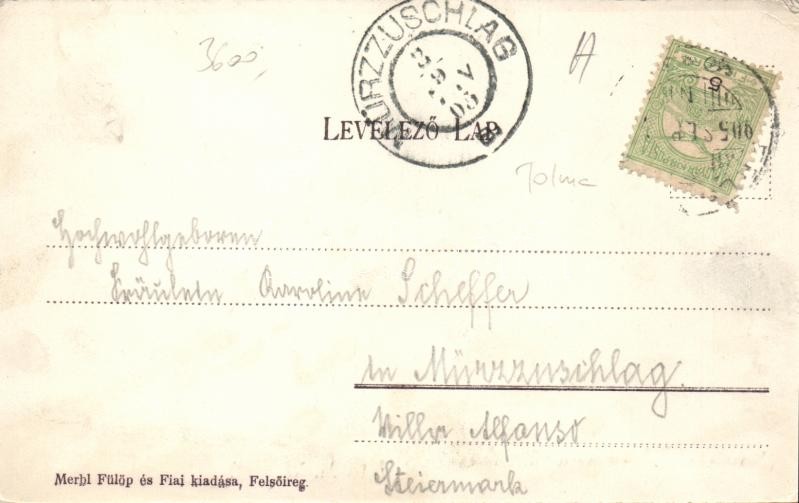 3600,
MÜRZZUSCHLAG
LEVELEZŐ LAP
Tolma
Hochwohlgeboren
Fräulein Karoline Scheffer
in Mürzzuschlag.
Villa Alfonso
Steiermark
Merbl Fülöp és Fiai kiadása, Felsőireg.